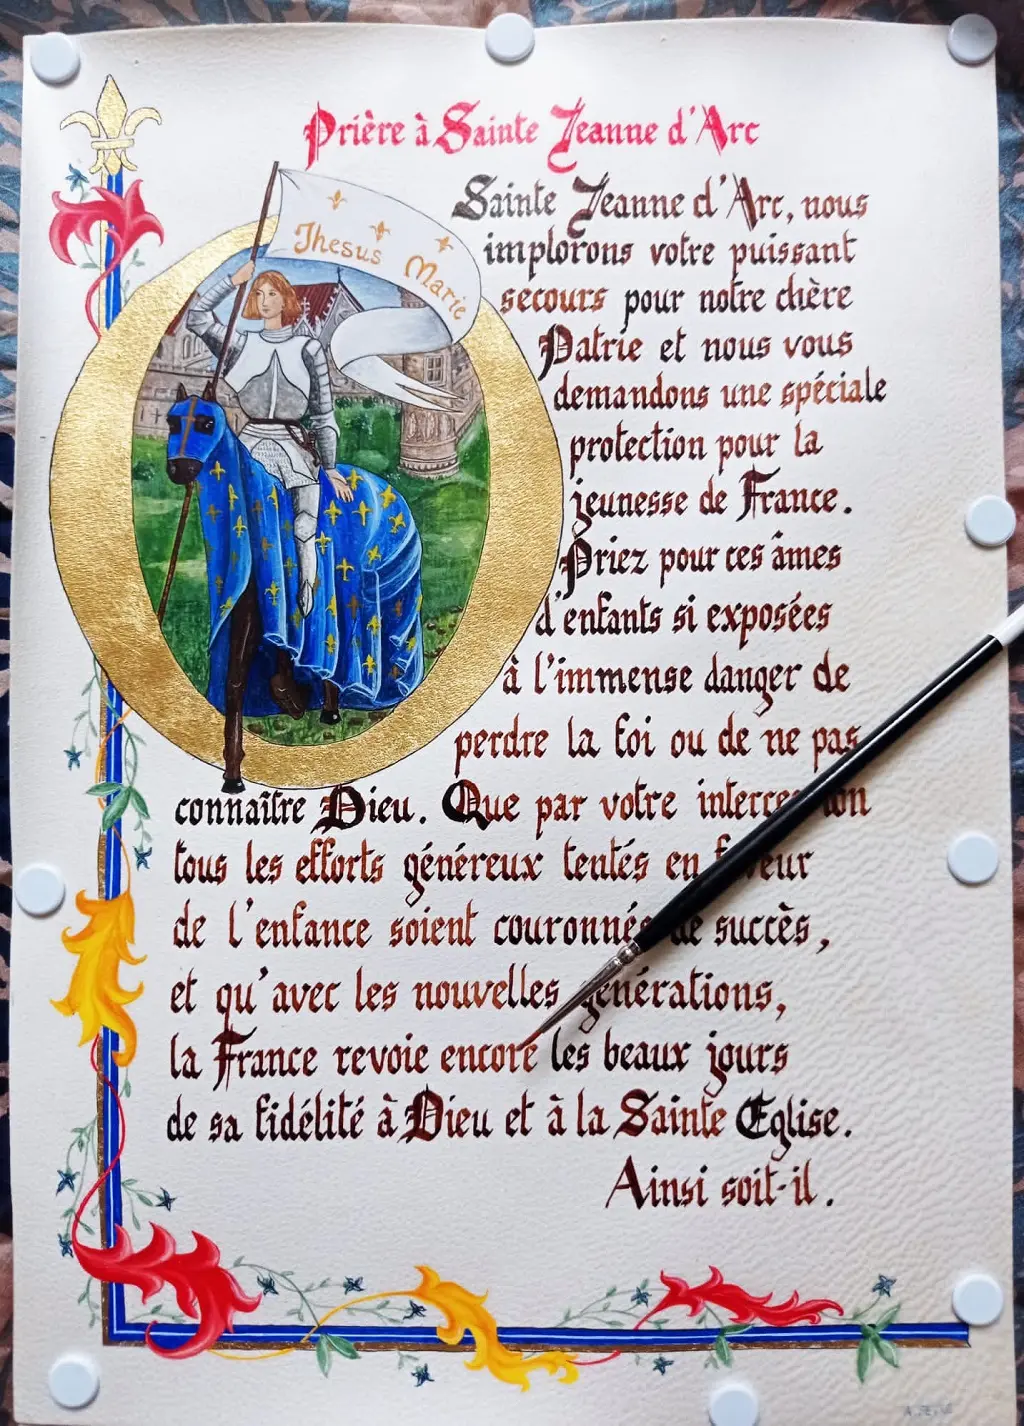 Prière à Sainte Jeanne d'Arc
Jhesus Marie
Sainte Jeanne d'Arc, nous
implorons votre puissant
secours pour notre chère
Patrie et nous vous
demandons une spéciale
protection pour la
jeunesse de France.
Priez pour ces âmes
d'enfants si exposées
à l'immense danger de
perdre la foi ou de ne pas
connaître Dieu. Que par votre intercession
tous les efforts généreux tentés en faveur
de l'enfance soient couronnés de succès,
et qu'avec les nouvelles générations,
la France revoie encore les beaux jours
de sa fidélité à Dieu et à la Sainte Eglise.
Ainsi soit-il.